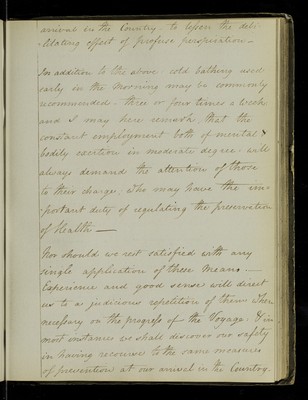 arrival in the Country - to lessen the debi-
-litating effect of profuse perspiration -
In addition to the above cold bathing used
early in the morning may be commonly
recommended - three or four times a week
and I may here remark, that the
constant employment both of mental &
bodily exertion in moderate degree, will
always demand the attention of those
to their charge, Who may have the im-
portant duty of regulating the preservation
of Health -
Nor should we rest satisfied with any
single application of these Means. -
Experience and good sense will direct
us to a judicious repetition of them When
necessary on the progress of the Voyage. & in
most instances we shall discover our safety
in having recourse to the same measures
of prevention at our arrival in the Country.